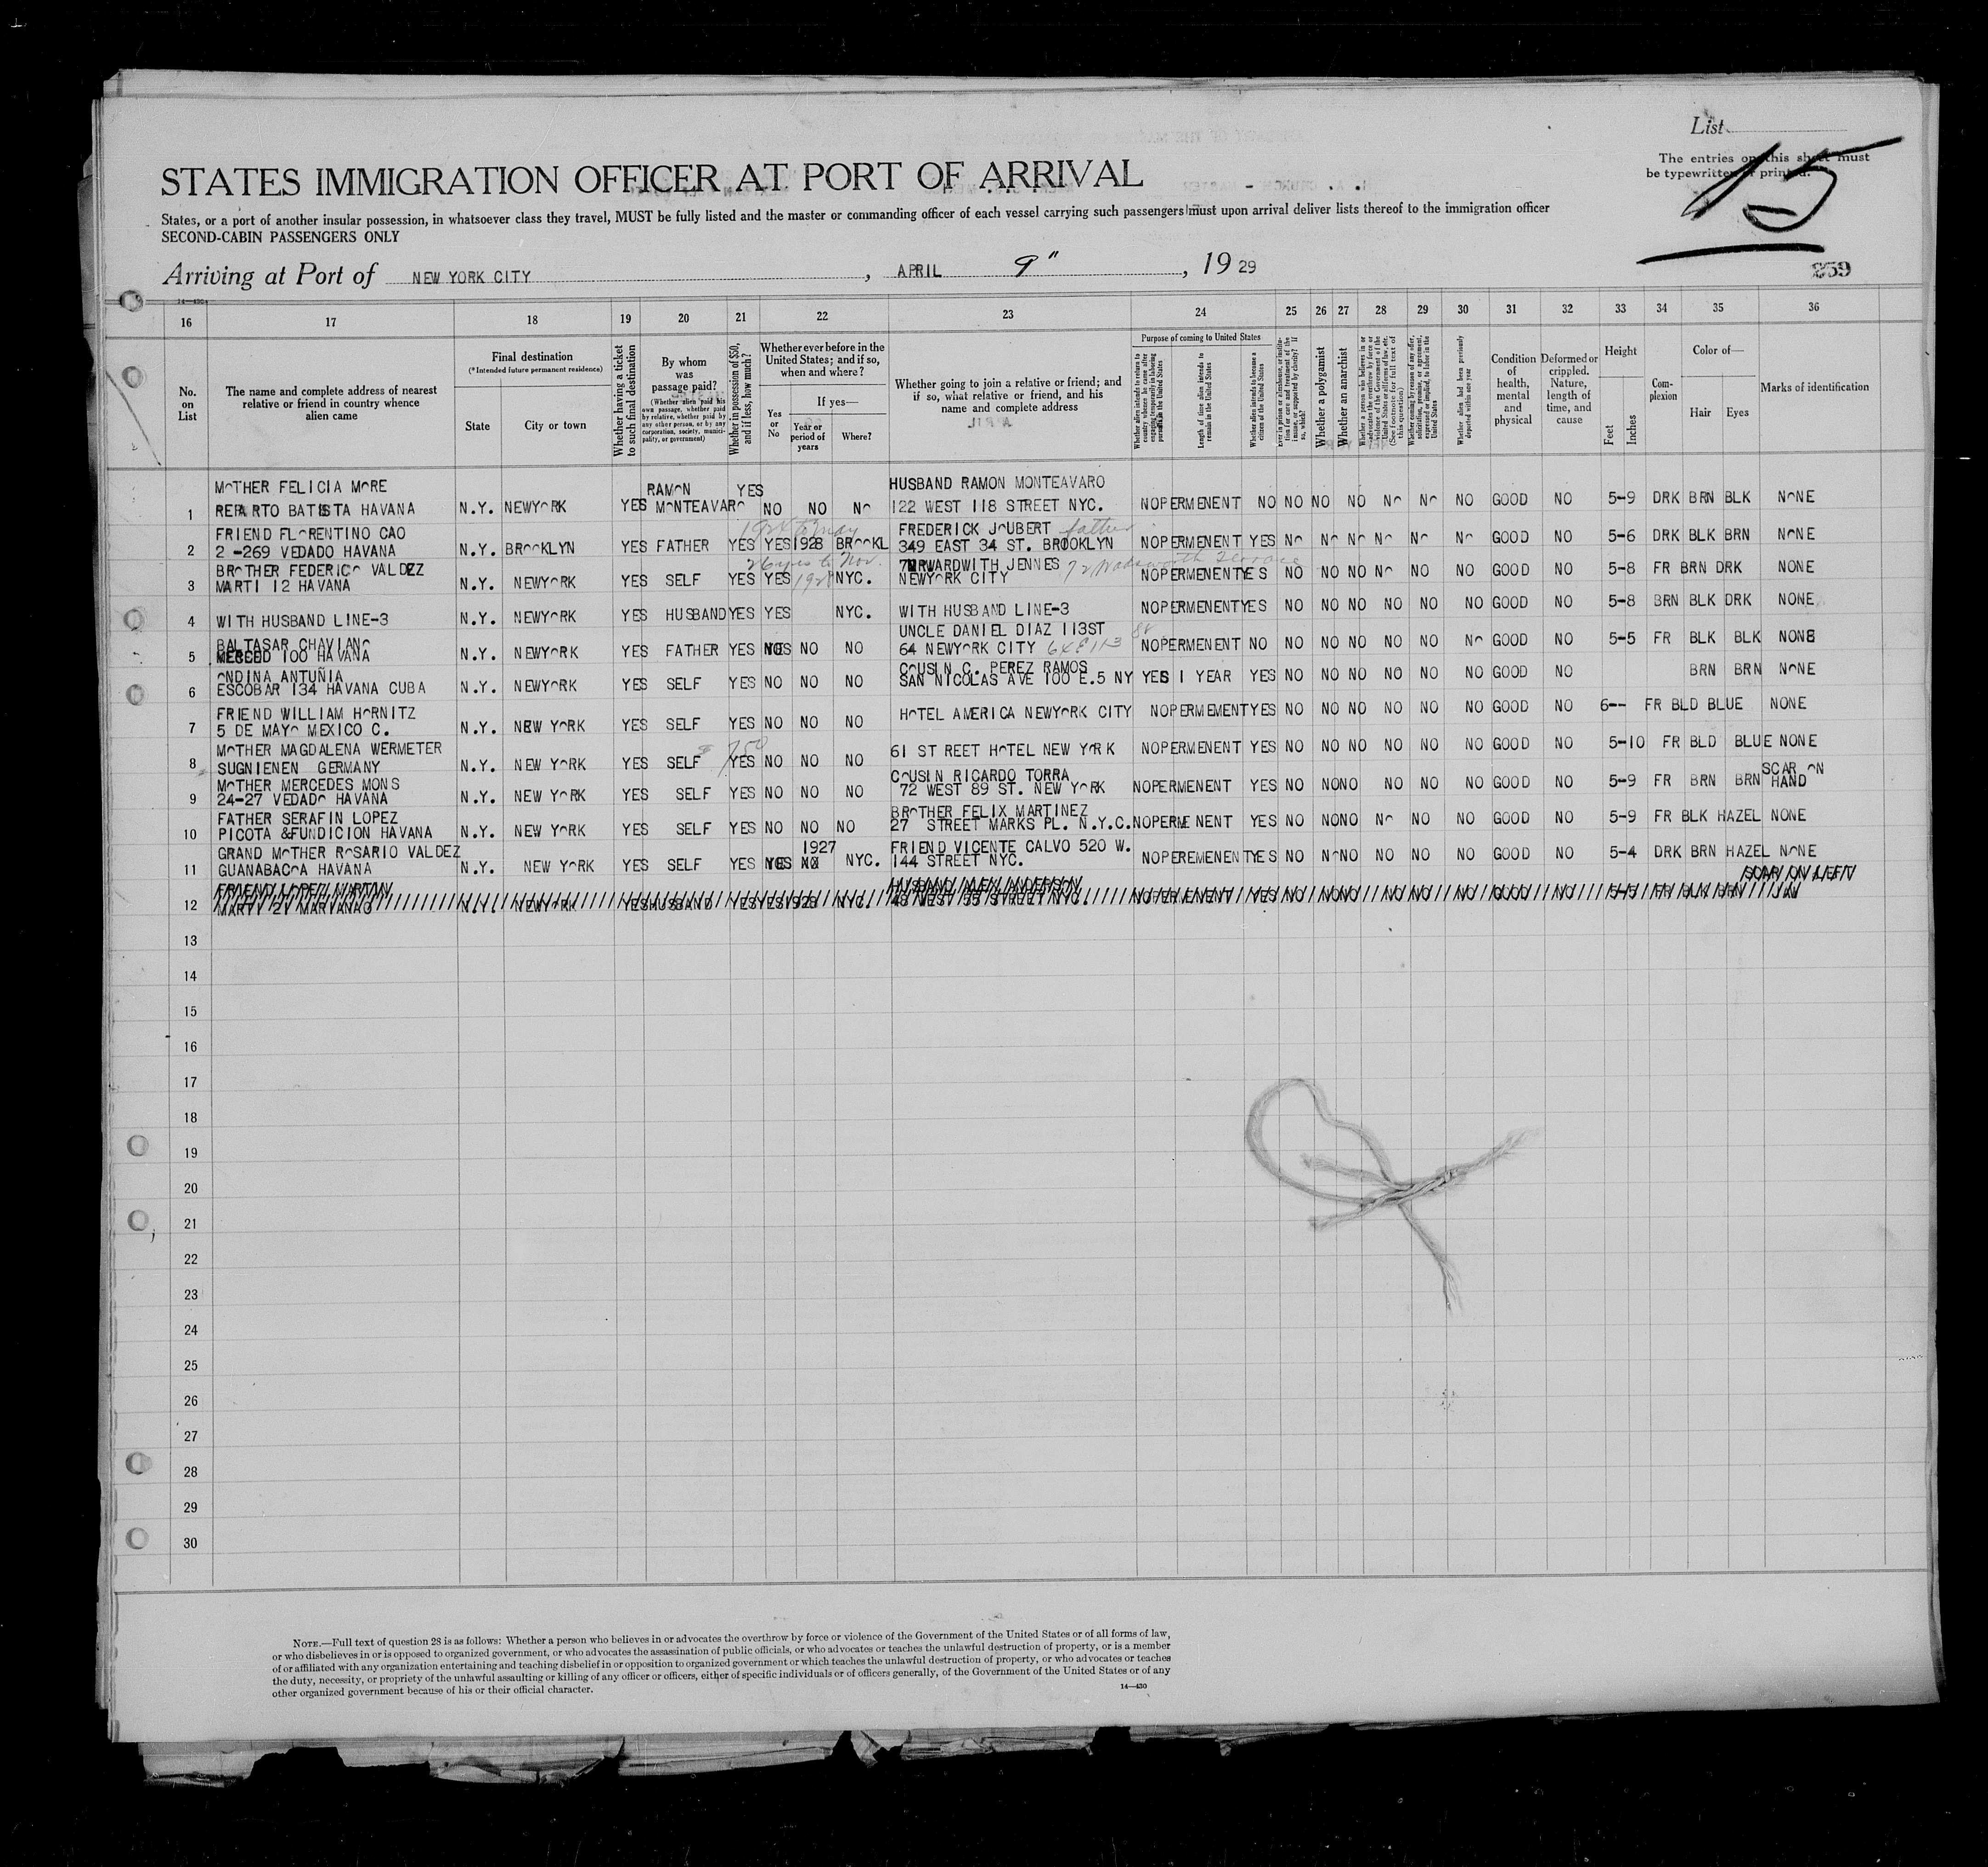 List
The entries on this sheet must
be typewritten or printed.
15
STATES IMMIGRATION OFFICER AT PORT OF ARRIVAL
States, or a port of another insular possession, in whatsoever class they travel, MUST be fully listed and the master or commanding officer of each vessel carrying such passengers must upon arrival deliver lists thereof to the immigration officer
SECOND-CABIN PASSENGERS ONLY
Arriving at Port of NEW YORK CITY, APRIL 9", 1929
259
14—430
16 17 18 19 20 21 22 23 24 25 26 27 28 29 30 31 32 33 34 35 36
No. on List
The name and complete address of nearest relative or friend in country whence alien came
Final destination
(*Intended future permanent residence)
State
City or town
Whether having a ticket to such final destination
By whom was passage paid?
(Whether alien paid his own passage, whether paid by relative, whether paid by any other person, or by any corporation, society, municipality, or government)
Whether in possession of $50, and if less, how much?
Whether ever before in the United States; and if so, when and where?
Yes or No
If yes—
Year or period of years
Where?
Whether going to join a relative or friend; and if so, what relative or friend, and his name and complete address
Purpose of coming to United States
Length of time alien intends to remain in the United States
Whether alien intends to become a citizen of the United States
Whether a polygamist
Whether an anarchist
(See footnote for full text of this question)
Whether alien had been previously deported within one year
Condition of health, mental and physical
Deformed or crippled. Nature, length of time, and cause
Height
Feet
Inches
Complexion
Color of—
Hair
Eyes
Marks of identification
MOTHER FELICIA MORE RAMON YES HUSBAND RAMON MONTEAVARO
1 REPARTO BATISTA HAVANA N.Y. NEWYORK YES MONTEAVARO NO NO NO 122 WEST 118 STREET NYC. NO PERMENENT NO NO NO NO NO NO NO GOOD NO 5-9 DRK BRN BLK NONE
FRIEND FLORENTINO CAO FREDERICK JOUBERT father
2 2 -269 VEDADO HAVANA N.Y. BROOKLYN YES FATHER YES YES 1928 BROOKL 349 EAST 34 ST. BROOKLYN NO PERMENENT YES NO NO NO NO NO NO GOOD NO 5-6 DRK BLK BRN NONE
BROTHER FEDERICO VALDEZ 26 yrs to Nov. WARDWITH JENNES 72 Wadsworth Terrace
3 MARTI 12 HAVANA N.Y. NEWYORK YES SELF YES YES 1928 NYC. NEWYORK CITY NO PERMENENT YES NO NO NO NO NO NO GOOD NO 5-8 FR BRN DRK NONE
4 WITH HUSBAND LINE-3 N.Y. NEWYORK YES HUSBAND YES YES NYC. WITH HUSBAND LINE-3 NO PERMENENT YES NO NO NO NO NO NO GOOD NO 5-8 BRN BLK DRK NONE
BALTASAR CHAVIANO UNCLE DANIEL DIAZ 113ST
5 MERCED 100 HAVANA N.Y. NEWYORK YES FATHER YES NO NO NO 64 NEWYORK CITY 64 E 113 NO PERMENENT NO NO NO NO NO NO NO GOOD NO 5-5 FR BLK BLK NONE
ONDINA ANTUÑIA COUSIN C. PEREZ RAMOS
6 ESCOBAR 134 HAVANA CUBA N.Y. NEWYORK YES SELF YES NO NO NO SAN NICOLAS AVE 100 E.5 NY YES 1 YEAR YES NO NO NO NO NO NO GOOD NO BRN BRN NONE
FRIEND WILLIAM HORNITZ
7 5 DE MAYO MEXICO C. N.Y. NEW YORK YES SELF YES NO NO NO HOTEL AMERICA NEWYORK CITY NO PERMEMENT YES NO NO NO NO NO NO GOOD NO 6-- FR BLD BLUE NONE
MOTHER MAGDALENA WERMETER
8 SUGNIENEN GERMANY N.Y. NEW YORK YES SELF YES NO NO NO 61 ST REET HOTEL NEW YORK NO PERMENENT YES NO NO NO NO NO NO GOOD NO 5-10 FR BLD BLUE NONE
MOTHER MERCEDES MONS COUSIN RICARDO TORRA SCAR ON
9 24-27 VEDADO HAVANA N.Y. NEW YORK YES SELF YES NO NO NO 72 WEST 89 ST. NEW YORK NO PERMENENT YES NO NO NO NO NO NO GOOD NO 5-9 FR BRN BRN HAND
FATHER SERAFIN LOPEZ BROTHER FELIX MARTINEZ
10 PICOTA &FUNDICION HAVANA N.Y. NEW YORK YES SELF YES NO NO NO 27 STREET MARKS PL. N.Y.C. NO PERME NENT YES NO NO NO NO NO NO GOOD NO 5-9 FR BLK HAZEL NONE
GRAND MOTHER ROSARIO VALDEZ 1927 FRIEND VICENTE CALVO 520 W.
11 GUANABACOA HAVANA N.Y. NEW YORK YES SELF YES YES NYC. 144 STREET NYC. NO PEREMENENT YES NO NO NO NO NO NO GOOD NO 5-4 DRK BRN HAZEL NONE
FRIEND LOPEZ MARTIN HUSBAND ANDERSON SCAR ON LEFT
12 MARTI 21 MARIANAO N.Y. NEWYORK YES HUSBAND YES YES 1928 NYC. 48 WEST 55 STREET NYC. NO PERMENENT YES NO NO NO NO NO NO GOOD NO 5-5 FR BLK BRN JAW
13
14
15
16
17
18
19
20
21
22
23
24
25
26
27
28
29
30
NOTE.—Full text of question 28 is as follows: Whether a person who believes in or advocates the overthrow by force or violence of the Government of the United States or of all forms of law,
or who disbelieves in or is opposed to organized government, or who advocates the assassination of public officials, or who advocates or teaches the unlawful destruction of property, or is a member
of or affiliated with any organization entertaining and teaching disbelief in or opposition to organized government or which teaches the unlawful destruction of property, or who advocates or teaches
the duty, necessity, or propriety of the unlawful assaulting or killing of any officer or officers, either of specific individuals or of officers generally, of the Government of the United States or of any
other organized government because of his or their official character.
14—430